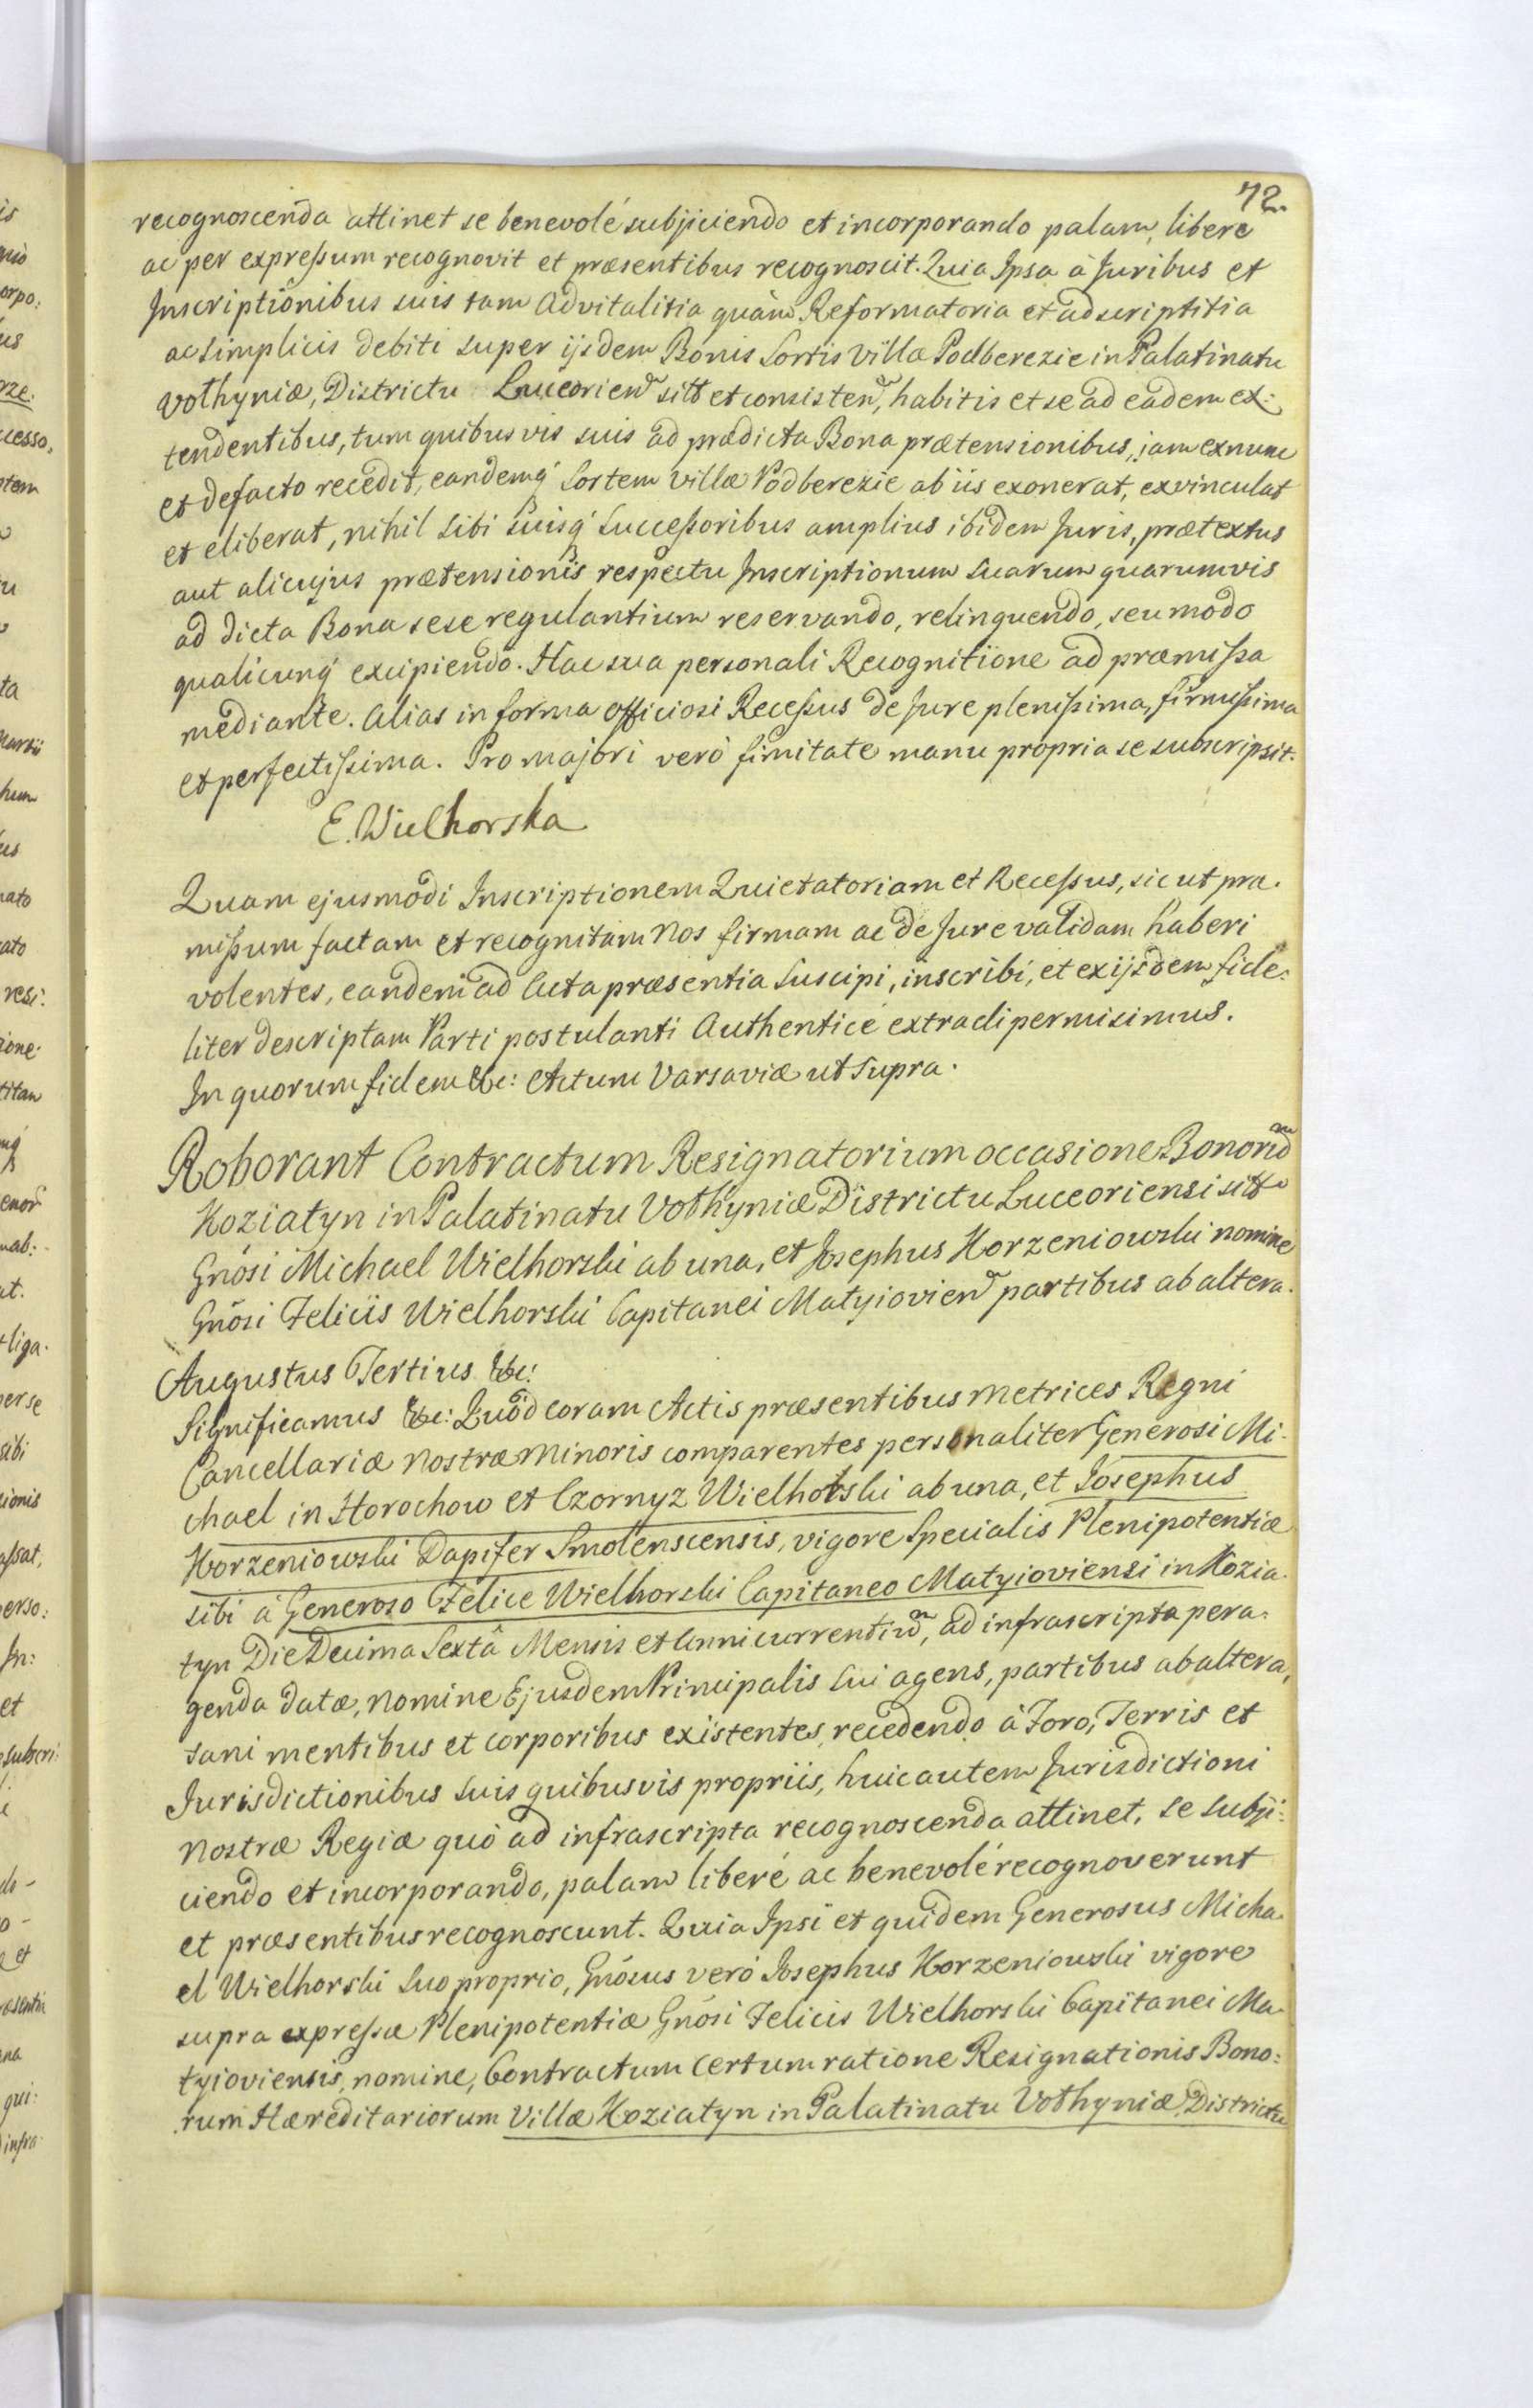 72.
recognoscenda attinet se benevolé subjiciendo et incorporando palam, libere
ac per expreſsum recognovit et præsentibus recognoscit. Quia Ipsa à Juribus et
Inscriptionibus suis tam Advitalitia quàm Reformatoria et adscriptitia
ac simplicis debiti super ijsdem Bonis Sortis Villæ Podberezie in Palatinatu
Volhyniæ, Districtu Luceorien sitt et consisten, habitis et se ad eadem ex:
tendentibus, tum quibusvis suis ad prædicta Bona prætensionibus, jam exnunc
et defacto recedit, eandemq́ Sortem Villæ Podberezie ab iis exonerat, exvinculat
et eliberat, nihil sibi suisq́ Succeſsoribus amplius ibidem Juris, prætextus
aut alicujus prætensionis respectu Inscriptionum suarum quarumvis
ad dicta Bona sese regulantium reservando, relinquendo, seu modo
qualicunq́ excipiendo. Hac sua personali Recognitione ad præmiſsa
mediante. Alias in forma officiosi Receſsus de Jure pleniſsima, firmiſsima
et perfectiſsima. Pro majori verò fimitate manu propria se subscripsit.
E. Wielhorska
Quam ejusmodi Inscriptionem Quietatoriam et Receſsus, sicut præ.
miſsum factam et recognitam Nos firmam ac de Jure validam haberi
volentes, eandem ad Acta præsentia Suscipi, inscribi, et ex ijsdem fide:
liter descriptam Parti postulanti Authenticé extradi permisimus.
In quorum fidem &c: Actum Varsaviæ ut Supra.
Roborant Contractum Resignatorium occasione Bonorum
Koziatyn in Palatinatu Volhyniæ Districtu Luceoriensi sitt
Gnósi Michael Wielhorski ab una, et Josephus Korzeniowski nomine
Gnósi Felicis Wielhorski Capitanei Matyiovien partibus ab altera.
Augustus Tertius &c:
Significamus &c: Quód coram Actis præsentibus Metrices Regni
Cancellariæ Nostræ Minoris comparentes personaliter Generosi Mi.
chael in Horochow et Czornyz Wielhorski ab una, et Josephus
Korzeniowski Dapifer Smolenscensis, vigore Specialis Plenipotentiæ
sibi á Generoso Felice Wielhorski Capitaneo Matyioviensi in Kozia.
tyn Die Decima Sextâ Mensis et Anni currentium, ad infrascripta pera.
genda datæ, nomine Ejusdem Principalis sui agens, partibus ab altera,
sani mentibus et corporibus existentes, recedendo à Foro, Terris et
Jurisdictionibus suis quibusvis propriis, huic autem Jurisdictioni
Nostræ Regiæ quò ad infrascripta recognoscenda attinet, se subji:
ciendo et incorporando, palam liberé ac benevolé recognoverunt
et præsentibus recognoscunt. Quia Ipsi et quidem Generosus Micha.
el Wielhorski suo proprio, Gnósus veró Josephus Korzeniowski vigore
supra expreſsæ Plenipotentiæ Gnósi Felicis Wielhorski Capitanei Ma.
tyioviensis, nomine, Contractum certum ratione Resignationis Bono:
rum Hæreditariorum Villæ Koziatyn in Palatinatu Volhyniæ Districtu